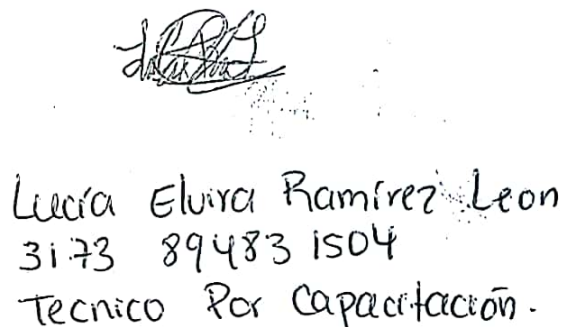 Lucía Elvira Ramírez Leon
3173 89483 1504
Tecnico Por Capacitación.